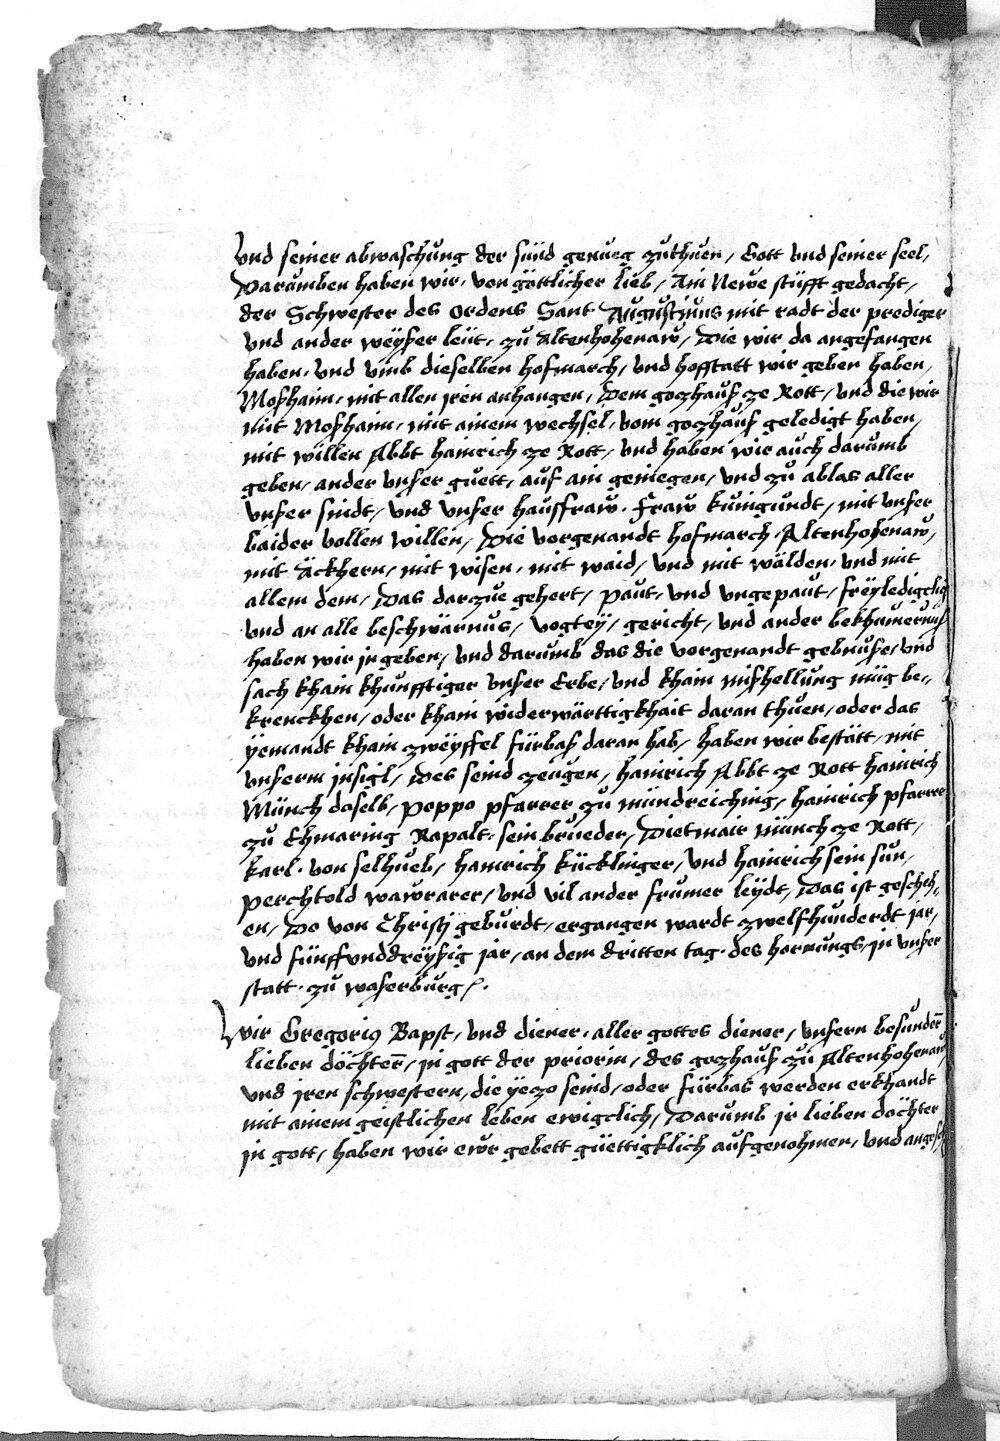 Vnd seiner abwaschung der sünd genueg zuthuen, Gott vnd seiner seel,
Darumben haben wir, von göttlicher lieb, Ain Newe stüfft gedacht,
der Schwester des ordens Sant Augustinus mit radt der prediger
vnd ander weyser leüt, zu Altenhohenaw, Die wir da angefangen
haben, vnd vmb dieselben hofmarch, vnd hofstatt wir geben haben,
Moshaim, mit allen jren anhangen, Dem gozhaus ze Rott, vnd die wir
mit Moshaim, mit ainem wechsel, vom gozhaus geledigt haben,
mit willen Abbt hainrich ze Rott, vnd haben wir auch darumb
geben, ander vnser guett, auf ain geniegen, vnd zu ablas aller
vnser sindt, vnd vnser hausfraw. Fraw kunigundt, mit vnser
baider vollen willen, Die vorgenandt hofmarch Altenhohenaw,
mit Äckhern, mit wisen, mit waid, vnd mit wälden, vnd mit
allem dem, Das darzue gehert, paut, vnd vngepaut, freyledigclig
vnd an alle beschwärnus, vogtey, gericht, vnd ander bekhumernus
haben wir jn geben, vnd darumb das die vorgenandt gebnuse, vnd
sach khain khunfftiger vnser Erbe, vnd khain mishellung müg be„
krenckhen, oder kham widerwärttigkhait daran thuen, oder das
yemandt khain zweyffel fürbas daran hab, haben wir bestätt, mit
vnserm jnsigl, Des seind zeugen, hainrich Abbt ze Rott hainrich
Münch daselb, Poppo pfarrer zu mündreiching, hainrich pfarrer
zu Ehmaring Rapalt. sein brueder, Dietmair münch ze Rott,
karl. von selhueb, hainrich kücklinger, vnd hainrich sein sun,
perchtold wawrarer, vnd vil ander frumer leydt, Das ist gescheh„
en, Do von Christj geburdt, ergangen wardt zwelfhunderdt jar,
vnd fünffvnddreysig jar, an dem dritten tag. des hornungs, jn vnser
statt. zu waserburg.
Wir Gregorius Bapst, vnd diener, aller gottes diener, vnsern besundern
lieben döchtern, jn gott der priorin, des gozhaus zu Altenhohenaw
vnd jren schwestern, die yezo seind, oder fürbas werden erkhandt
mit ainem geistlichen leben ewigclich, Darumb jr lieben döchter
jn gott, haben wir ewr gebett güettigklich aufgenohmen, vnd angeseh